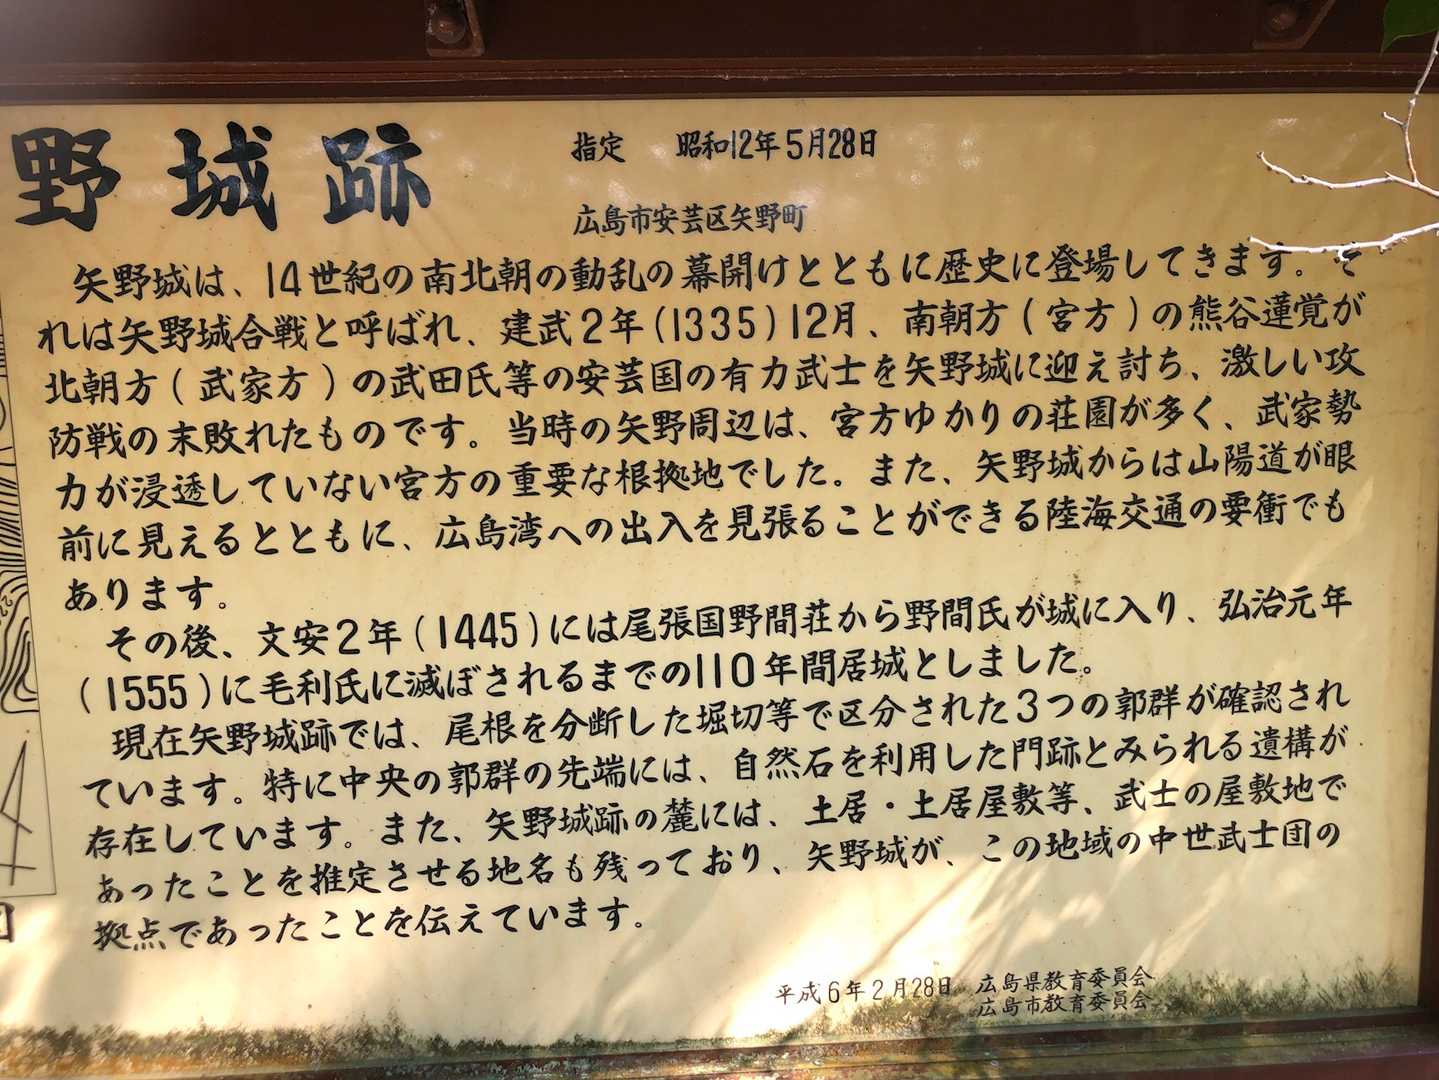 野城跡
指定 昭和12年5月28日
広島市安芸区矢野町
矢野城は、14世紀の南北朝の動乱の幕開けとともに歴史に登場してきます。そ
れは矢野城合戦と呼ばれ、建武2年(1335)12月、南朝方(宮方)の熊谷蓮覚が
北朝方(武家方)の武田氏等の安芸国の有力武士を矢野城に迎え討ち、激しい攻
防戦の末敗れたものです。当時の矢野周辺は、宮方ゆかりの荘園が多く、武家勢
力が浸透していない宮方の重要な根拠地でした。また、矢野城からは山陽道が眼
前に見えるとともに、広島湾への出入を見張ることができる陸海交通の要衝でも
あります。
その後、文安2年(1445)には尾張国野間荘から野間氏が城に入り、弘治元年
(1555)に毛利氏に滅ぼされるまでの110年間居城としました。
現在矢野城跡では、尾根を分断した堀切等で区分された3つの郭群が確認され
ています。特に中央の郭群の先端には、自然石を利用した門跡とみられる遺構が
存在しています。また、矢野城跡の麓には、土居・土居屋敷等、武士の屋敷地で
あったことを推定させる地名も残っており、矢野城が、この地域の中世武士団の
拠点であったことを伝えています。
平成6年2月28日 広島県教育委員会
広島市教育委員会